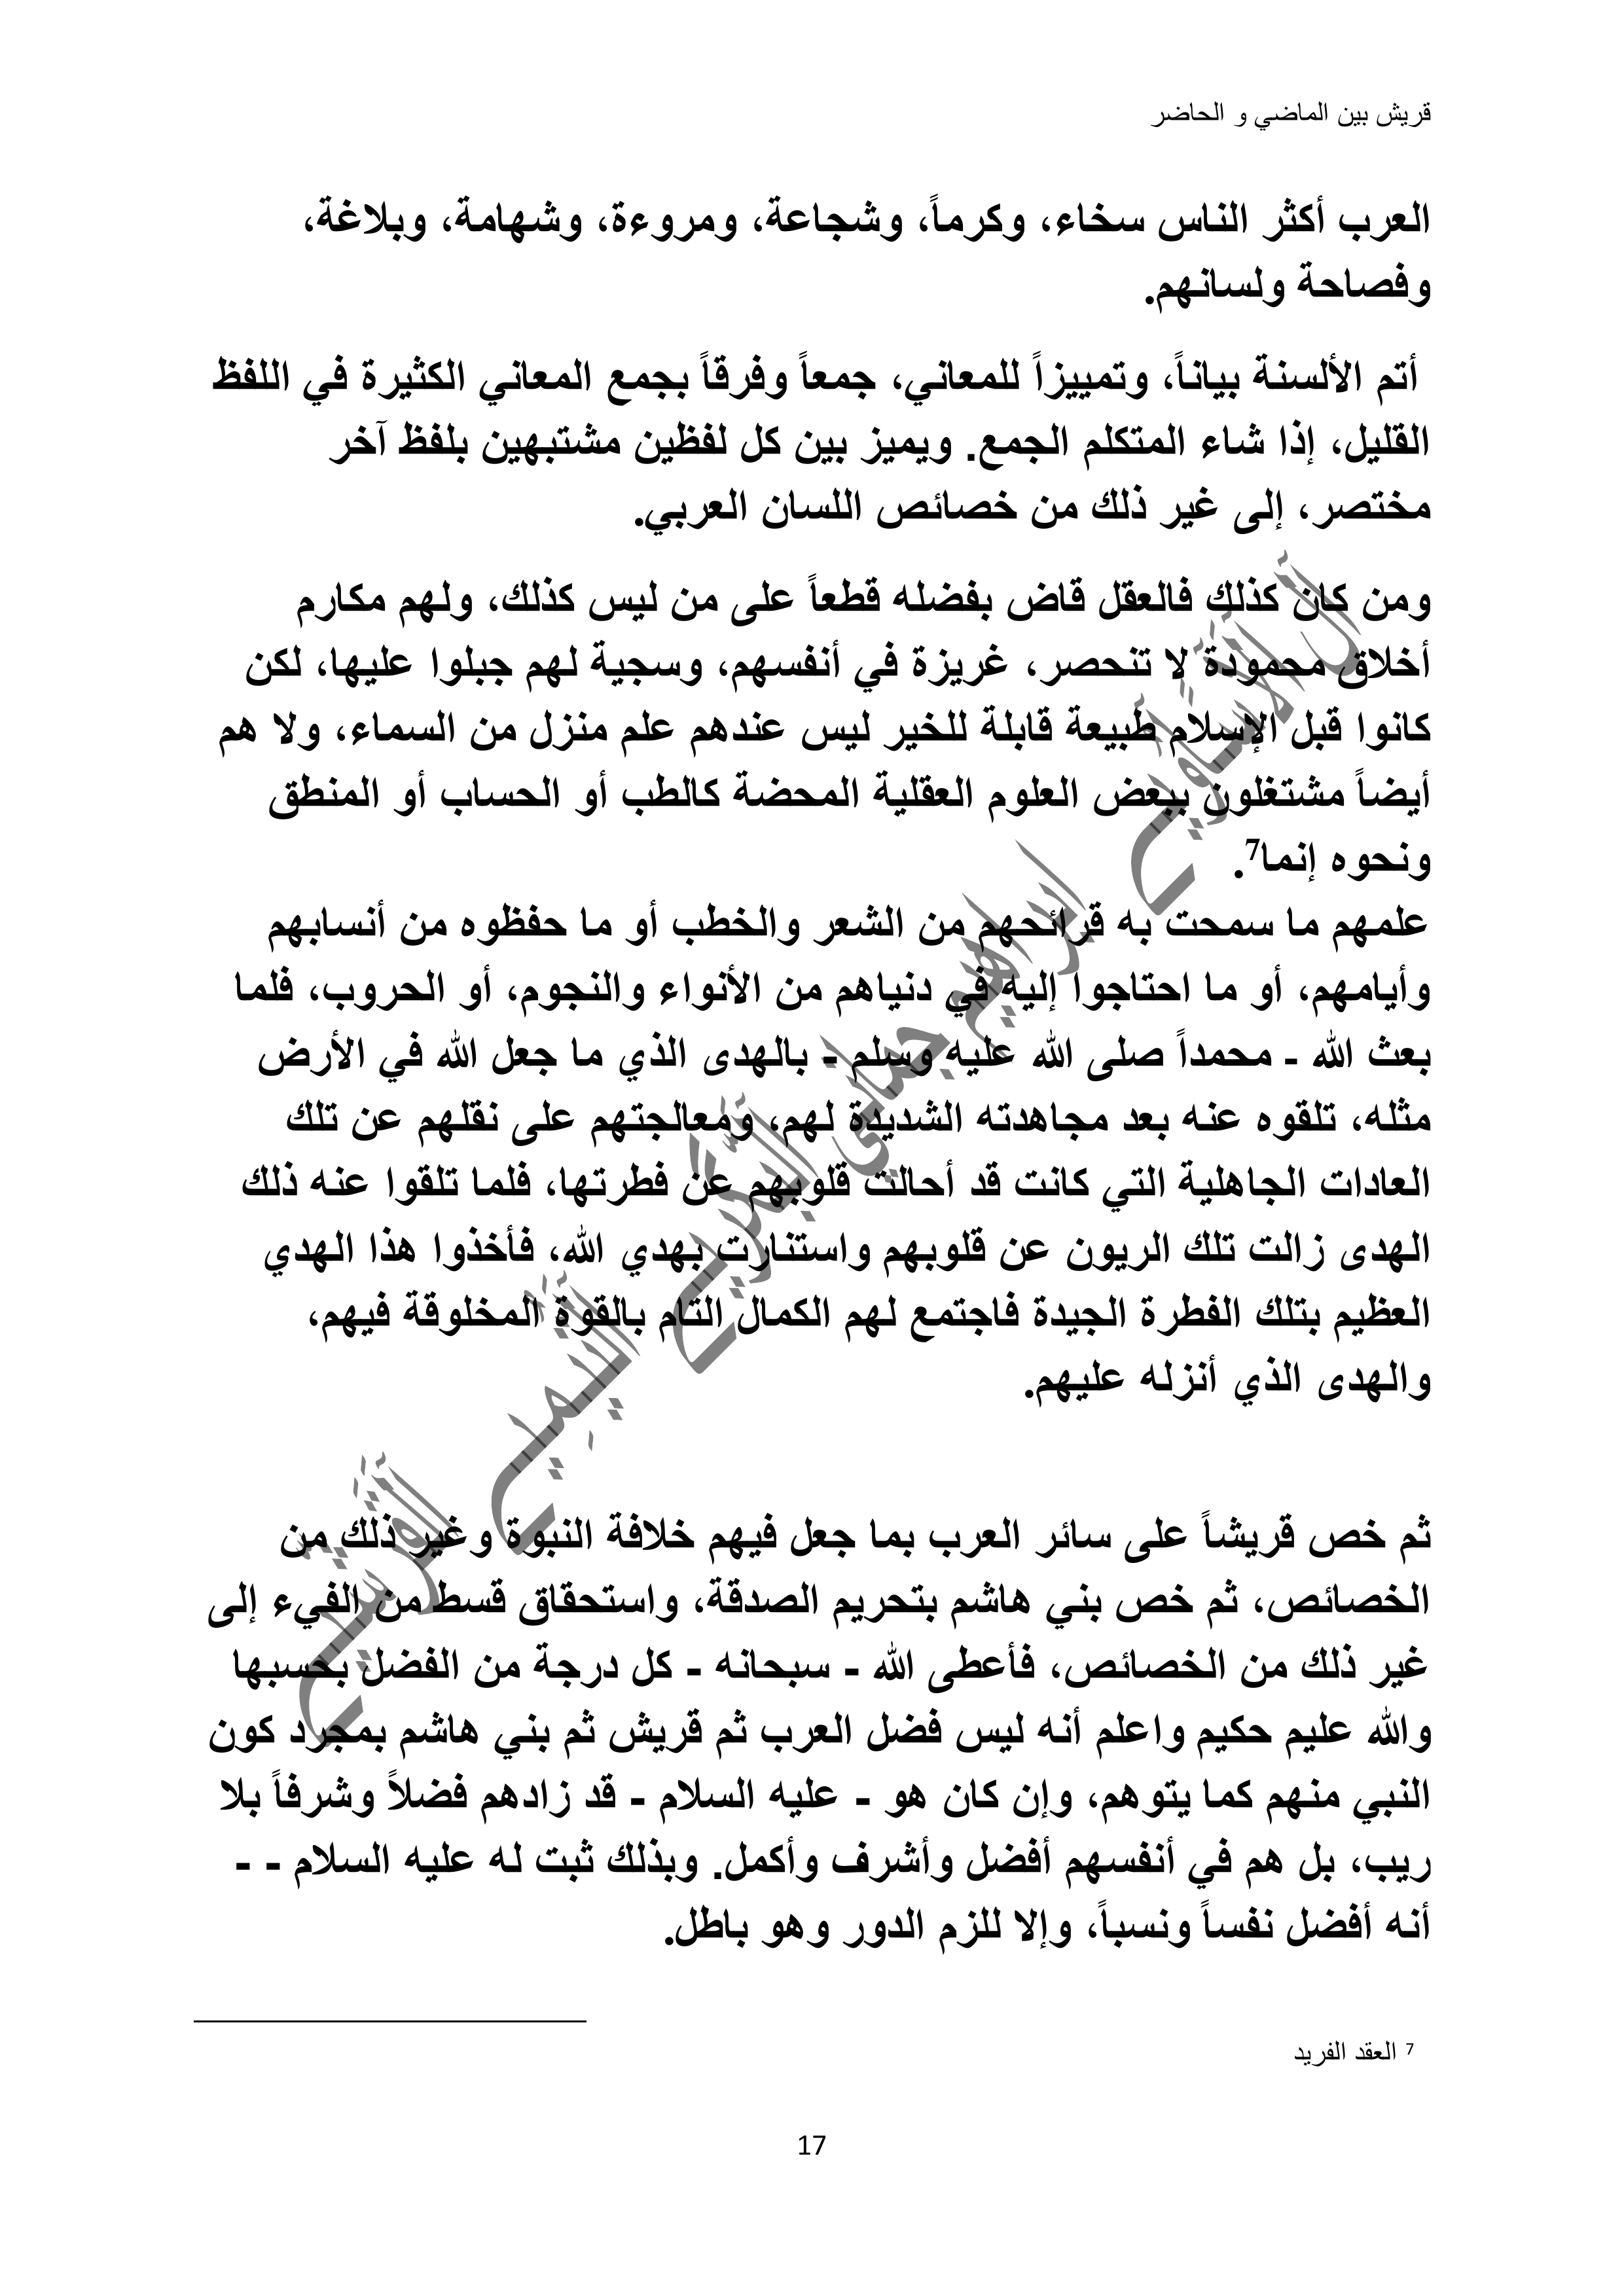 قريش بين الماضي و الحاضر
العرب أكثر الناس سخاء، وكرماً، وشجاعة، ومروءة، وشهامة، وبلاغة،
وفصاحة ولسانهم.
أتم الألسنة بياناً، وتمييزاً للمعاني، جمعاً وفرقاً بجمع المعاني الكثيرة في اللفظ
القليل، إذا شاء المتكلم الجمع. ويميز بين كل لفظين مشتبهين بلفظ آخر
مختصر، إلى غير ذلك من خصائص اللسان العربي.
ومن كان كذلك فالعقل قاض بفضله قطعاً على من ليس كذلك، ولهم مكارم
أخلاق محمودة لا تنحصر، غريزة في أنفسهم، وسجية لهم جبلوا عليها، لكن
كانوا قبل الإسلام طبيعة قابلة للخير ليس عندهم علم منزل من السماء، ولا هم
أيضاً مشتغلون ببعض العلوم العقلية المحضة كالطب أو الحساب أو المنطق
ونحوه إنما7.
علمهم ما سمحت به قرائحهم من الشعر والخطب أو ما حفظوه من أنسابهم
وأيامهم، أو ما احتاجوا إليه في دنياهم من الأنواء والنجوم، أو الحروب، فلما
بعث الله - محمداً صلى الله عليه وسلم - بالهدى الذي ما جعل الله في الأرض
مثله، تلقوه عنه بعد مجاهدته الشديدة لهم، ومعالجتهم على نقلهم عن تلك
العادات الجاهلية التي كانت قد أحالت قلوبهم عن فطرتها، فلما تلقوا عنه ذلك
الهدى زالت تلك الريون عن قلوبهم واستنارت بهدي الله، فأخذوا هذا الهدي
العظيم بتلك الفطرة الجيدة فاجتمع لهم الكمال التام بالقوة المخلوقة فيهم،
والهدى الذي أنزله عليهم.
ثم خص قريشاً على سائر العرب بما جعل فيهم خلافة النبوة وغير ذلك من
الخصائص، ثم خص بني هاشم بتحريم الصدقة، واستحقاق قسط من الفيء إلى
غير ذلك من الخصائص، فأعطى الله - سبحانه - كل درجة من الفضل بحسبها
والله عليم حكيم واعلم أنه ليس فضل العرب ثم قريش ثم بني هاشم بمجرد كون
النبي منهم كما يتوهم، وإن كان هو - عليه السلام - قد زادهم فضلاً وشرفاً بلا
ريب، بل هم في أنفسهم أفضل وأشرف وأكمل. وبذلك ثبت له عليه السلام - -
أنه أفضل نفساً ونسباً، وإلا للزم الدور وهو باطل.
7 العقد الفريد
17